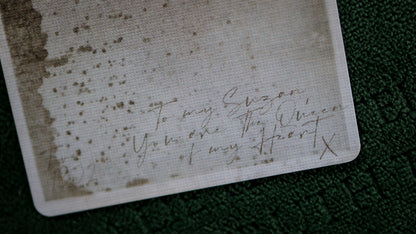 To my Suzan
You are the Queen
of my Heart
X